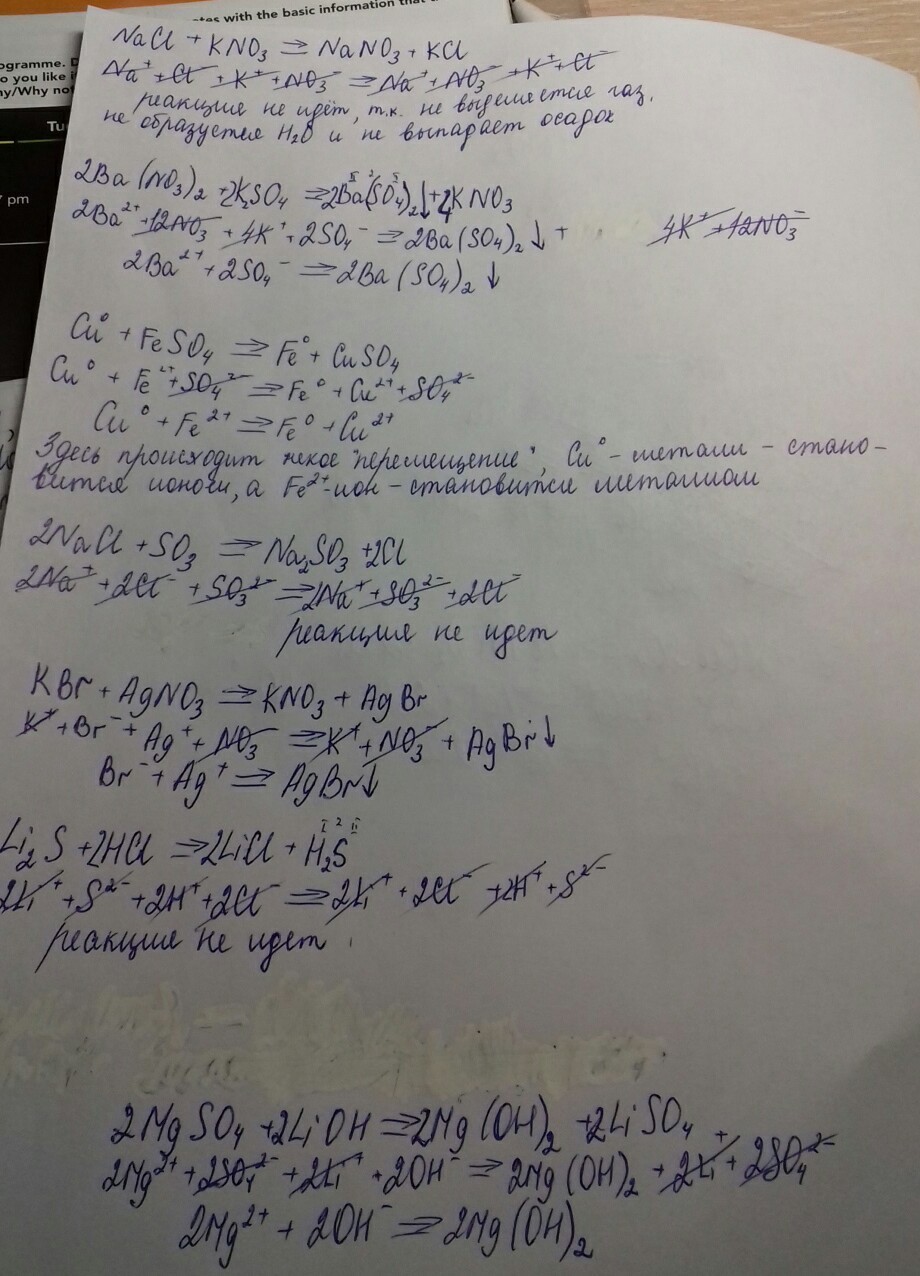 tes with the basic information that
ogramme. D
o you like i
ny/Why not
Tu
pm
NaCl + KNO₃ ⇒ NaNO₃ + KCl
Na⁺ + Cl⁻ + K⁺ + NO₃⁻ ⇒ Na⁺ + NO₃⁻ + K⁺ + Cl⁻
реакция не идёт, т.к. не выделяется газ,
не образуется H₂O и не выпадает осадок
2Ba(NO₃)₂ + 2K₂SO₄ ⇒ 2Ba(SO₄)₂↓ + 4KNO₃
2Ba²⁺ + 12NO₃⁻ + 4K⁺ + 2SO₄⁻ ⇒ 2Ba(SO₄)₂↓ + 4K⁺ + 12NO₃⁻
2Ba²⁺ + 2SO₄⁻ ⇒ 2Ba(SO₄)₂↓
Cu⁰ + FeSO₄ ⇒ Fe⁰ + CuSO₄
Cu⁰ + Fe²⁺ + SO₄²⁻ ⇒ Fe⁰ + Cu²⁺ + SO₄²⁻
Cu⁰ + Fe²⁺ ⇒ Fe⁰ + Cu²⁺
Здесь происходит некое "перемещение", Cu⁰ - металл - стано-
вится ионом, а Fe²⁺-ион - становится металлом
2NaCl + SO₃ ⇒ Na₂SO₃ + 2Cl
2Na⁺ + 2Cl⁻ + SO₃²⁻ ⇒ 2Na⁺ + SO₃²⁻ + 2Cl⁻
реакция не идет
KBr + AgNO₃ ⇒ KNO₃ + AgBr
K⁺ + Br⁻ + Ag⁺ + NO₃⁻ ⇒ K⁺ + NO₃⁻ + AgBr↓
Br⁻ + Ag⁺ ⇒ AgBr↓
Li₂S + 2HCl ⇒ 2LiCl + H₂S
2Li⁺ + S²⁻ + 2H⁺ + 2Cl⁻ ⇒ 2Li⁺ + 2Cl⁻ + 2H⁺ + S²⁻
реакция не идет
2MgSO₄ + 2LiOH ⇒ 2Mg(OH)₂ + 2LiSO₄
2Mg²⁺ + 2SO₄²⁻ + 2Li⁺ + 2OH⁻ ⇒ 2Mg(OH)₂ + 2Li⁺ + 2SO₄²⁻
2Mg²⁺ + 2OH⁻ ⇒ 2Mg(OH)₂